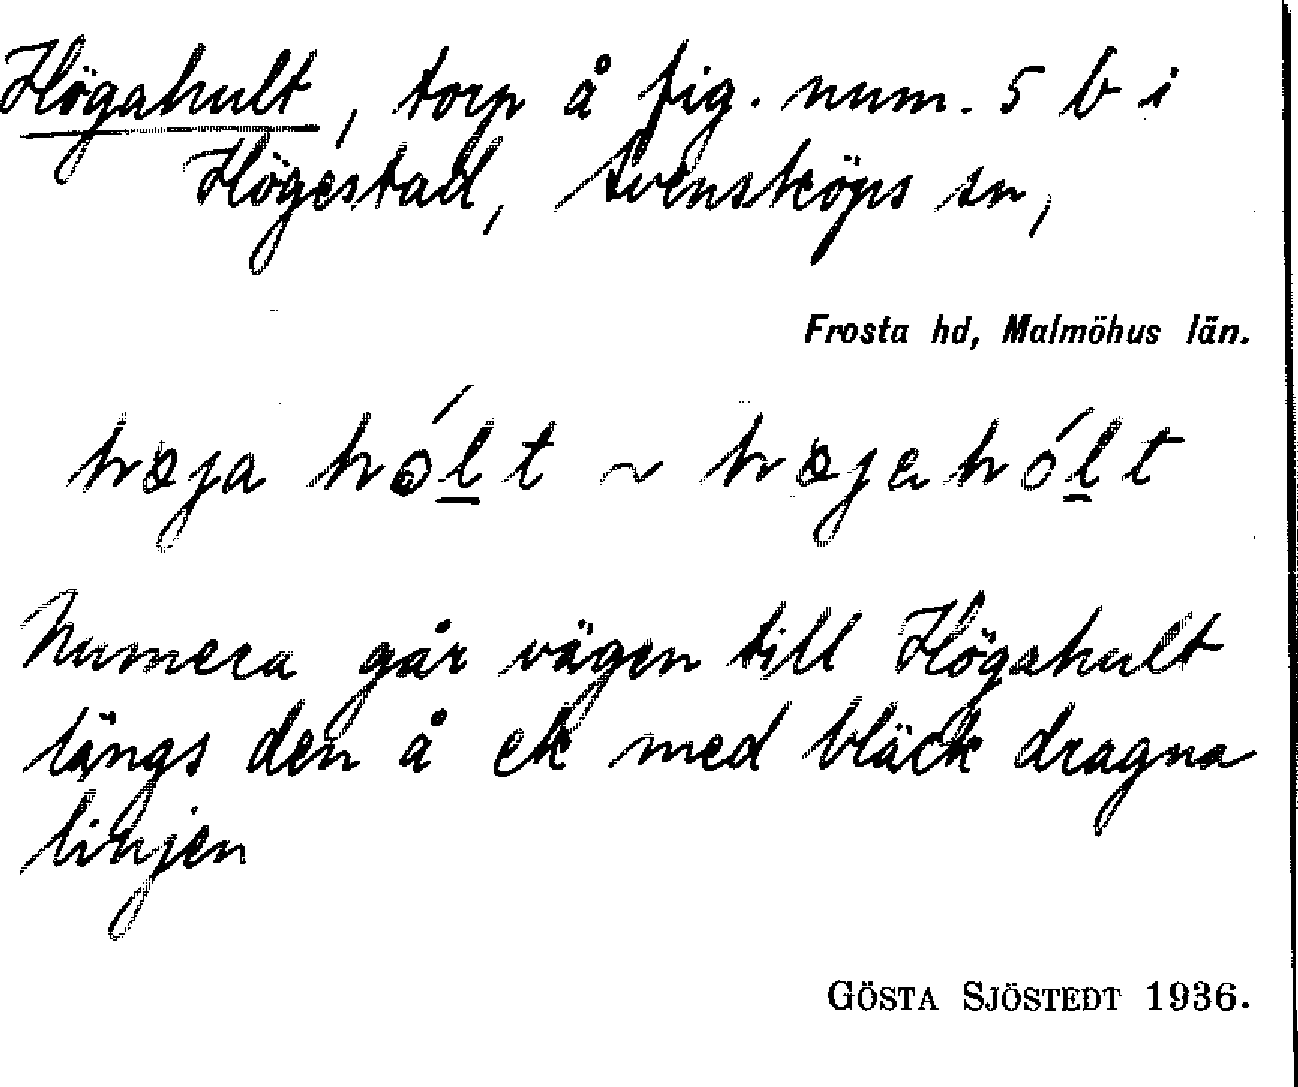 Högahult, torp å fig. num. 5 b i
Högestad, Svensköps sn,
Frosta hd, Malmöhus län.
høja hólt ~ højahólt
Numera går vägen till Högahult
längs den å ek med bläck dragna
linjen
GÖSTA SJÖSTEDT 1936.